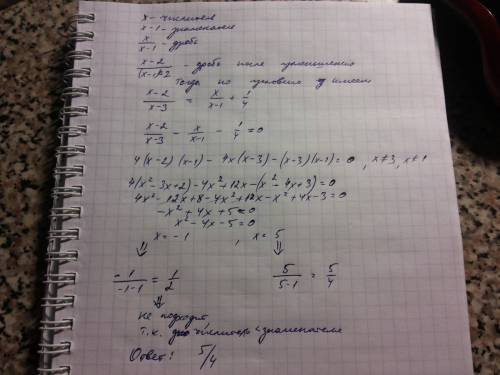 x - числитель
x-1 - знаменатель
x/(x-1) - дробь
(x-2)/((x-1)-2) - дробь после уменьшения
Тогда по условию имеем
(x-2)/(x-3) = x/(x-1) + 1/4
(x-2)/(x-3) - x/(x-1) - 1/4 = 0
4(x-2)(x-1) - 4x(x-3) - (x-3)(x-1) = 0, x≠3, x≠1
4(x²-3x+2) - 4x²+12x - (x²-4x+3) = 0
4x²-12x+8-4x²+12x-x²+4x-3=0
-x²+4x+5=0
x²-4x-5=0
x=-1, x=5
⇓ ⇓
-1/(-1-1) = 1/2 5/(5-1) = 5/4
⇓
не подходит
т.к. числитель < знаменателя
Ответ: 5/4